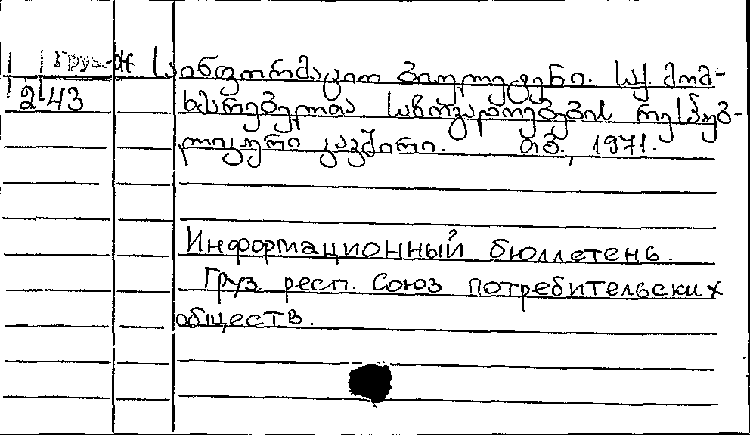 Груз-Ж საინფორმაციო ბიულეტენი. საქ. მომ-
2 43 ხმარებელთა საზოგადოებების რესპუბ-
ლიკური კავშირი. თბ., 1971.
Информационный бюллетень.
Груз. респ. Союз потребительских
обществ.